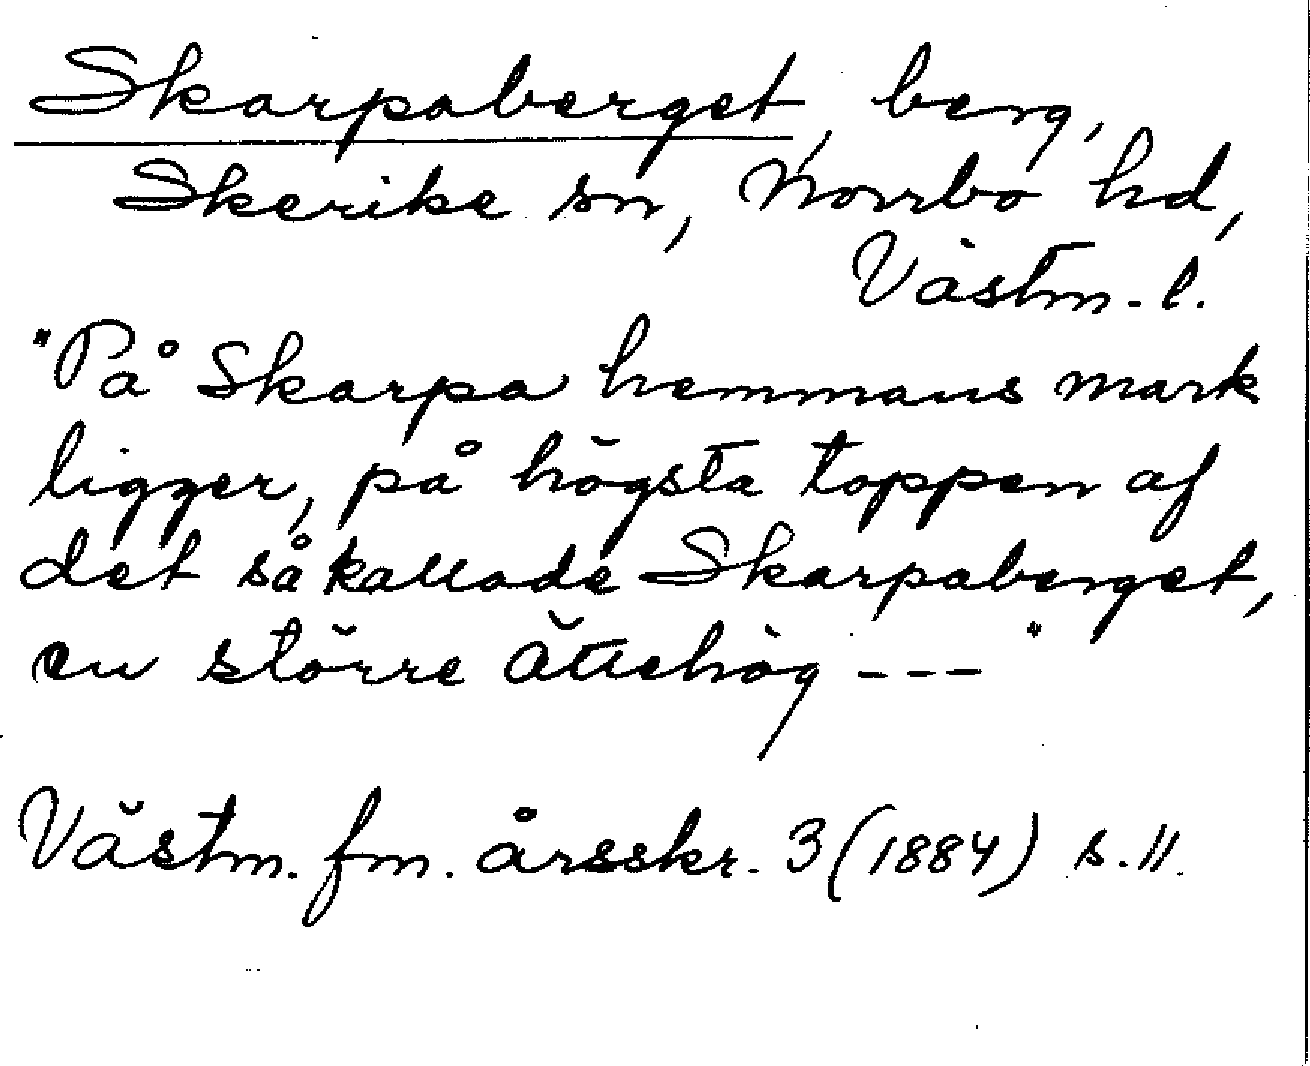 Skarpaberget, berg,
Skerike sn, Norrbo hd,
Västm. l.
"På Skarpa hemmans mark
ligger, på högsta toppen af
det så kallade Skarpaberget,
en större ättehög ---"
Västm. fm. årsskr. 3 (1884) s. 11.